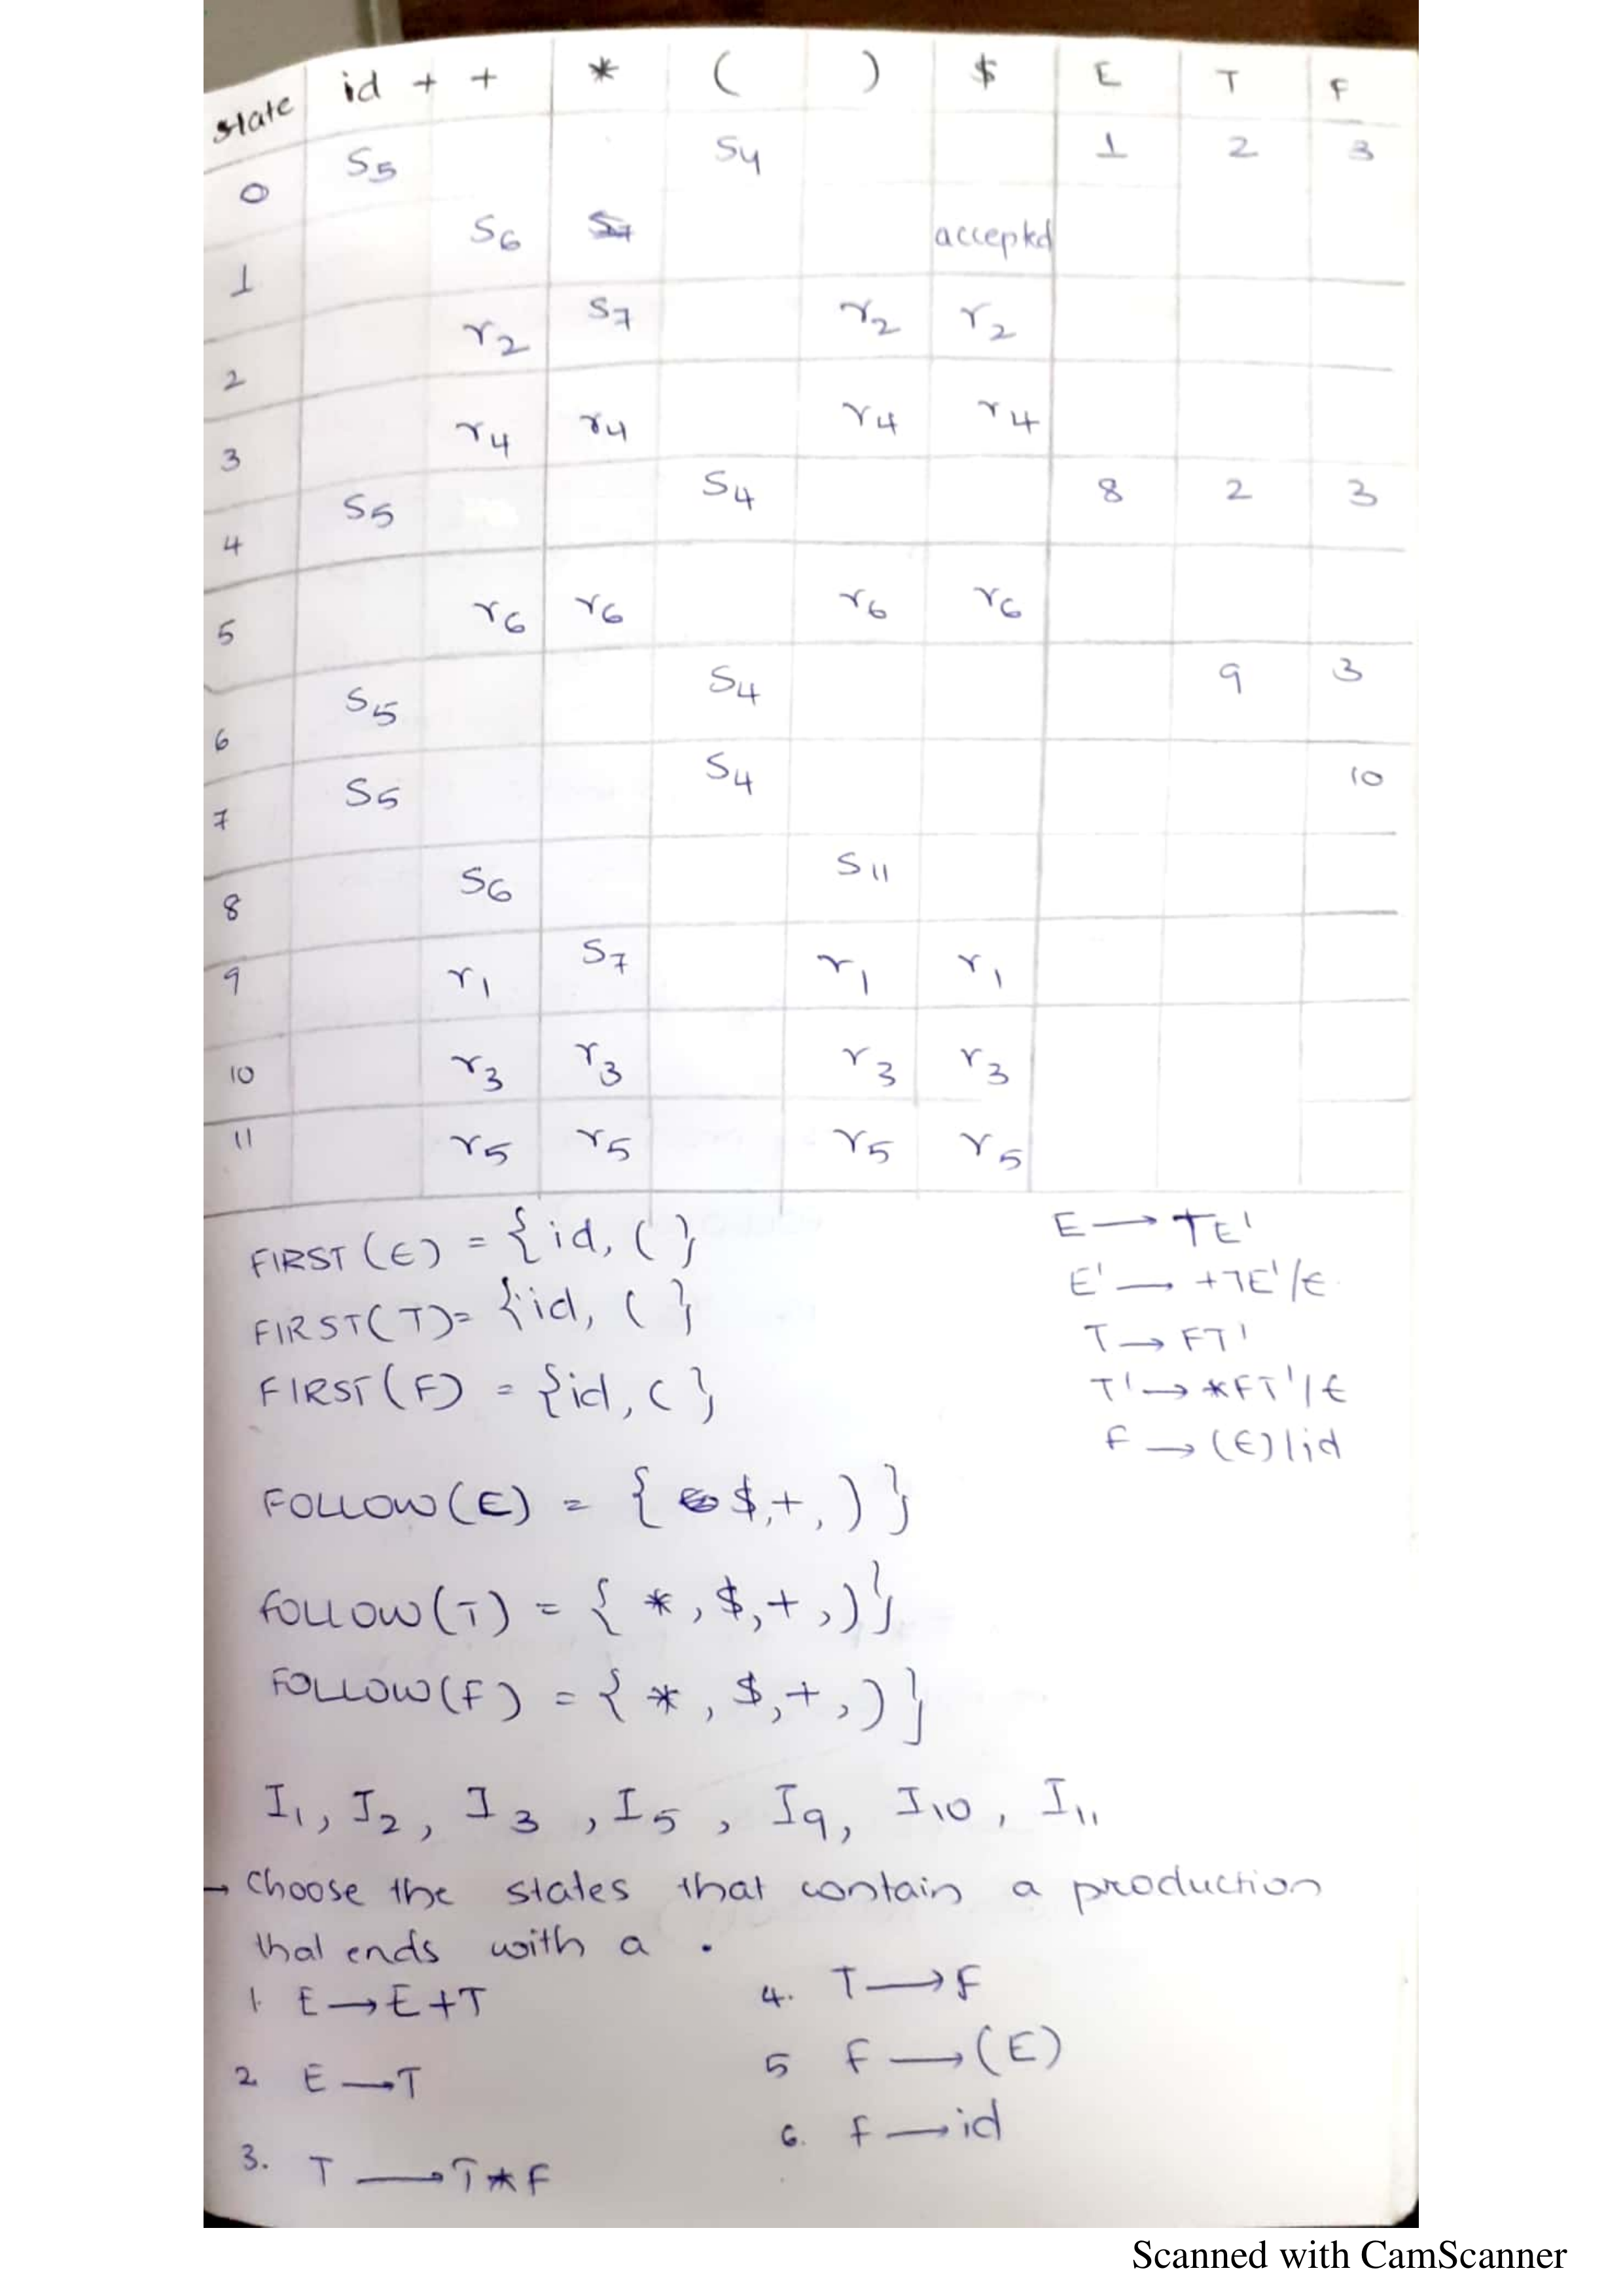 state id + + * ( ) $ E T F
0 S5 S4 1 2 3
1 S6 accepted
2 r2 S7 r2 r2
3 r4 r4 r4 r4
4 S5 S4 8 2 3
5 r6 r6 r6 r6
6 S5 S4 9 3
7 S5 S4 10
8 S6 S11
9 r1 S7 r1 r1
10 r3 r3 r3 r3
11 r5 r5 r5 r5
FIRST(E) = {id, ( }
FIRST(T) = {id, ( }
FIRST(F) = {id, ( }
E → TE'
E' → +TE'/ε
T → FT'
T' → *FT'/ε
F → (E)|id
FOLLOW(E) = { $,+, ) }
FOLLOW(T) = { *, $,+,)}
FOLLOW(F) = { *, $,+,)}
I1, I2, I3, I5, I9, I10, I11
→ Choose the states that contain a production
that ends with a .
1. E → E+T
2 E → T
3. T → T*F
4. T → F
5 F → (E)
6. F → id
Scanned with CamScanner